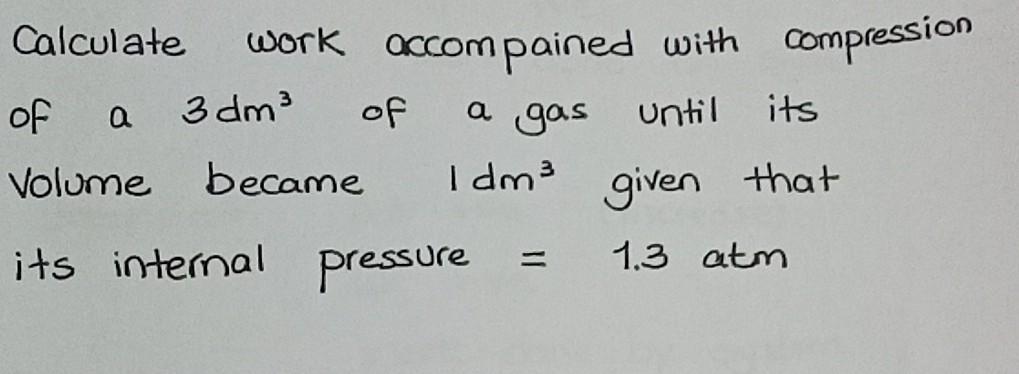 Calculate work accompained with compression
of a 3 dm³ of a gas until its
Volume became 1 dm³ given that
its internal pressure = 1.3 atm